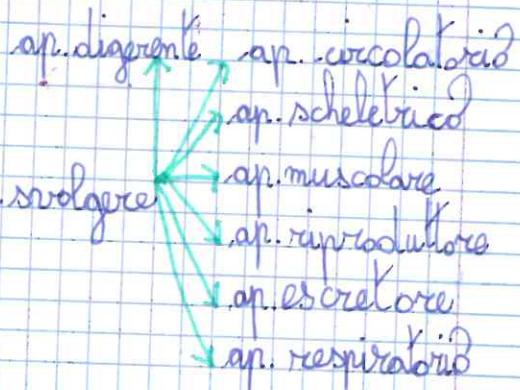 ap. digerente ap. circolatorio
ap. scheletrico
ap. muscolare
svolgere
ap. riproduttore
ap. escretore
ap. respiratorio